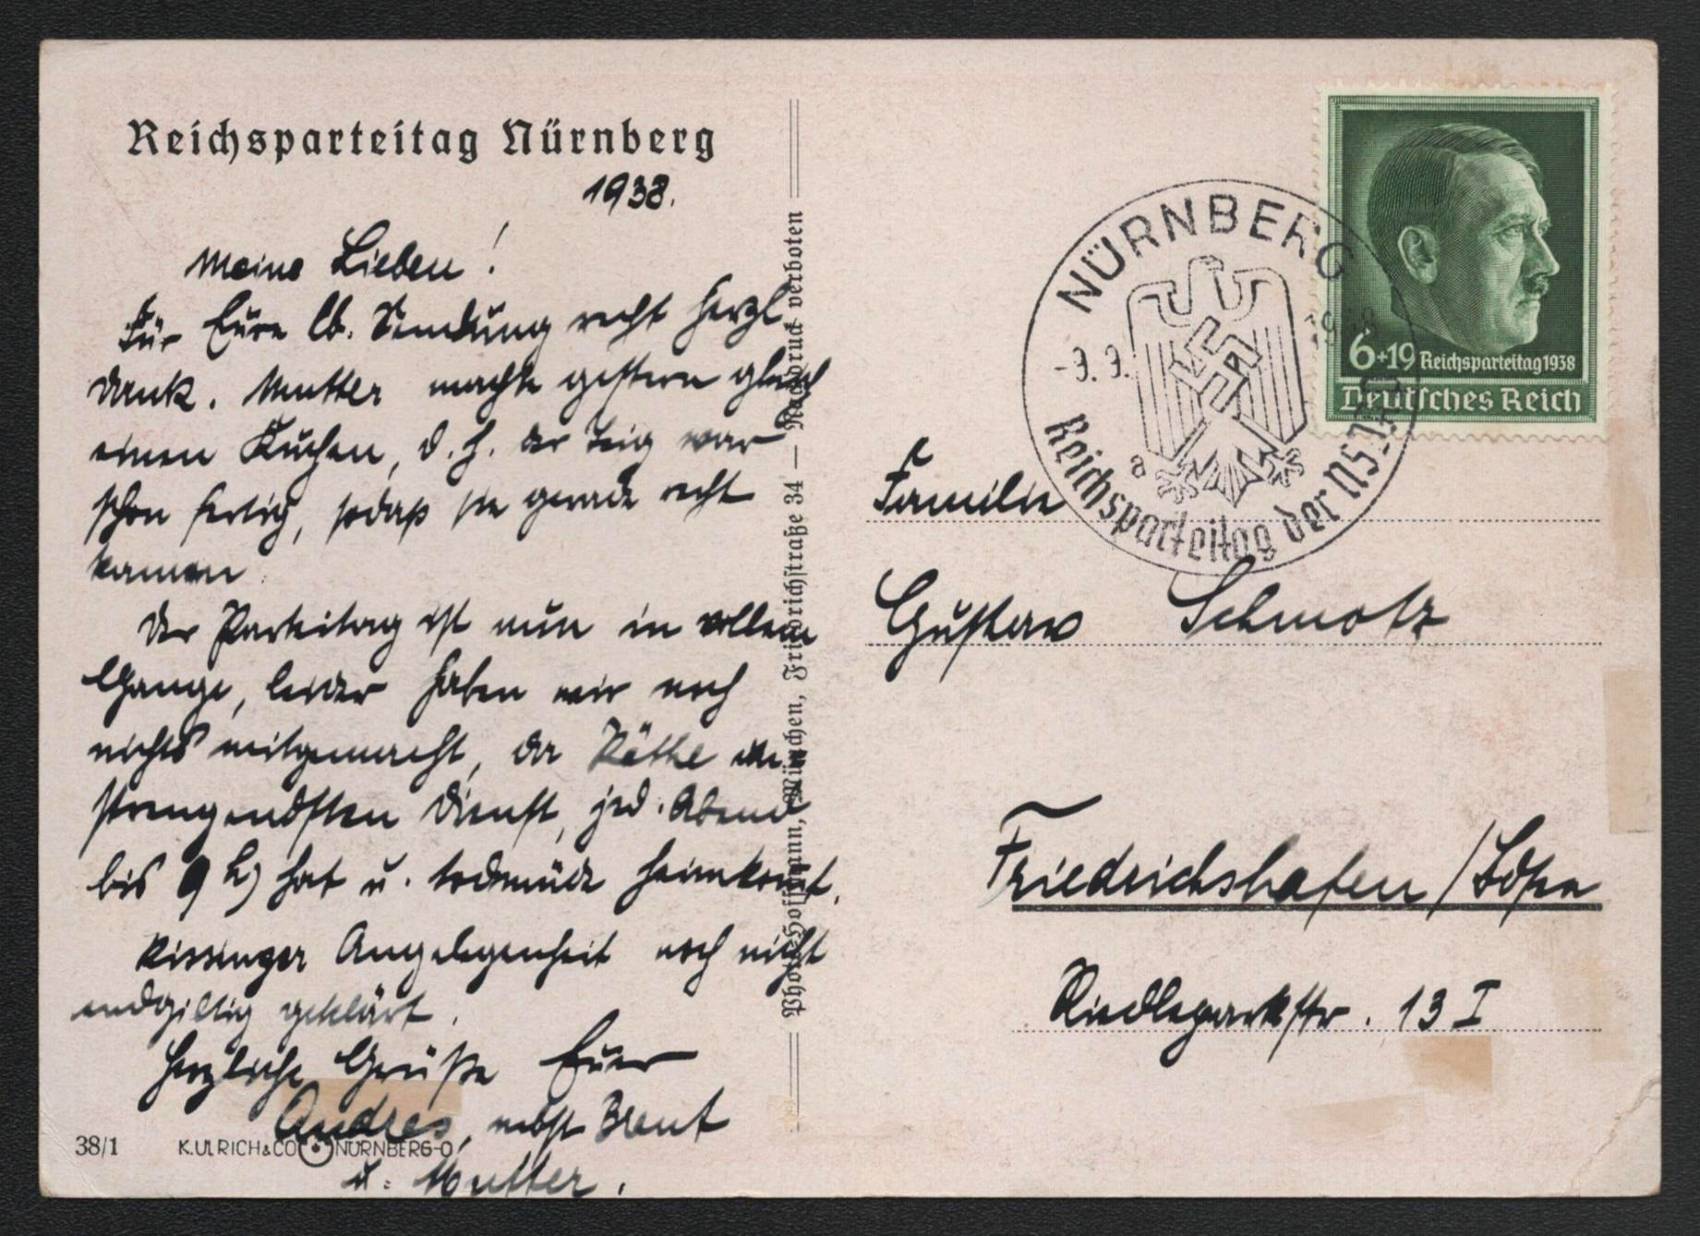 Reichsparteitag Nürnberg
1938.
Meine Lieben!
Für Eure lb. Sendung recht herzl.
Dank. Mutter machte gestern gleich
einen Kuchen, d. h. der Teig war
schon fertig, sodaß sie gerade recht
kamen.
Der Parteitag ist nun in vollem
Gange, leider haben wir noch
nichts mitgemacht, da Käthe
strengendsten Dienst, jed. Abend
bis 9 h hat u. todmüde heimkomt.
Kissinger Angelegenheit noch nicht
endgiltig geklärt.
Herzliche Grüße Euer
Andres, nebst Braut
u. Mutter.
38/1 K. ULRICH & CO NÜRNBERG-O
Photo-Hoffmann, München, Friedrichstraße 34 — Nachdruck verboten
NÜRNBERG
-9.9. 1938
a
Reichsparteitag der NSDAP
6+19 Reichsparteitag 1938
Deutsches Reich
Familie
Gustav Schmotz
Friedrichshafen /Bdsee
Riedleparkstr. 13 I